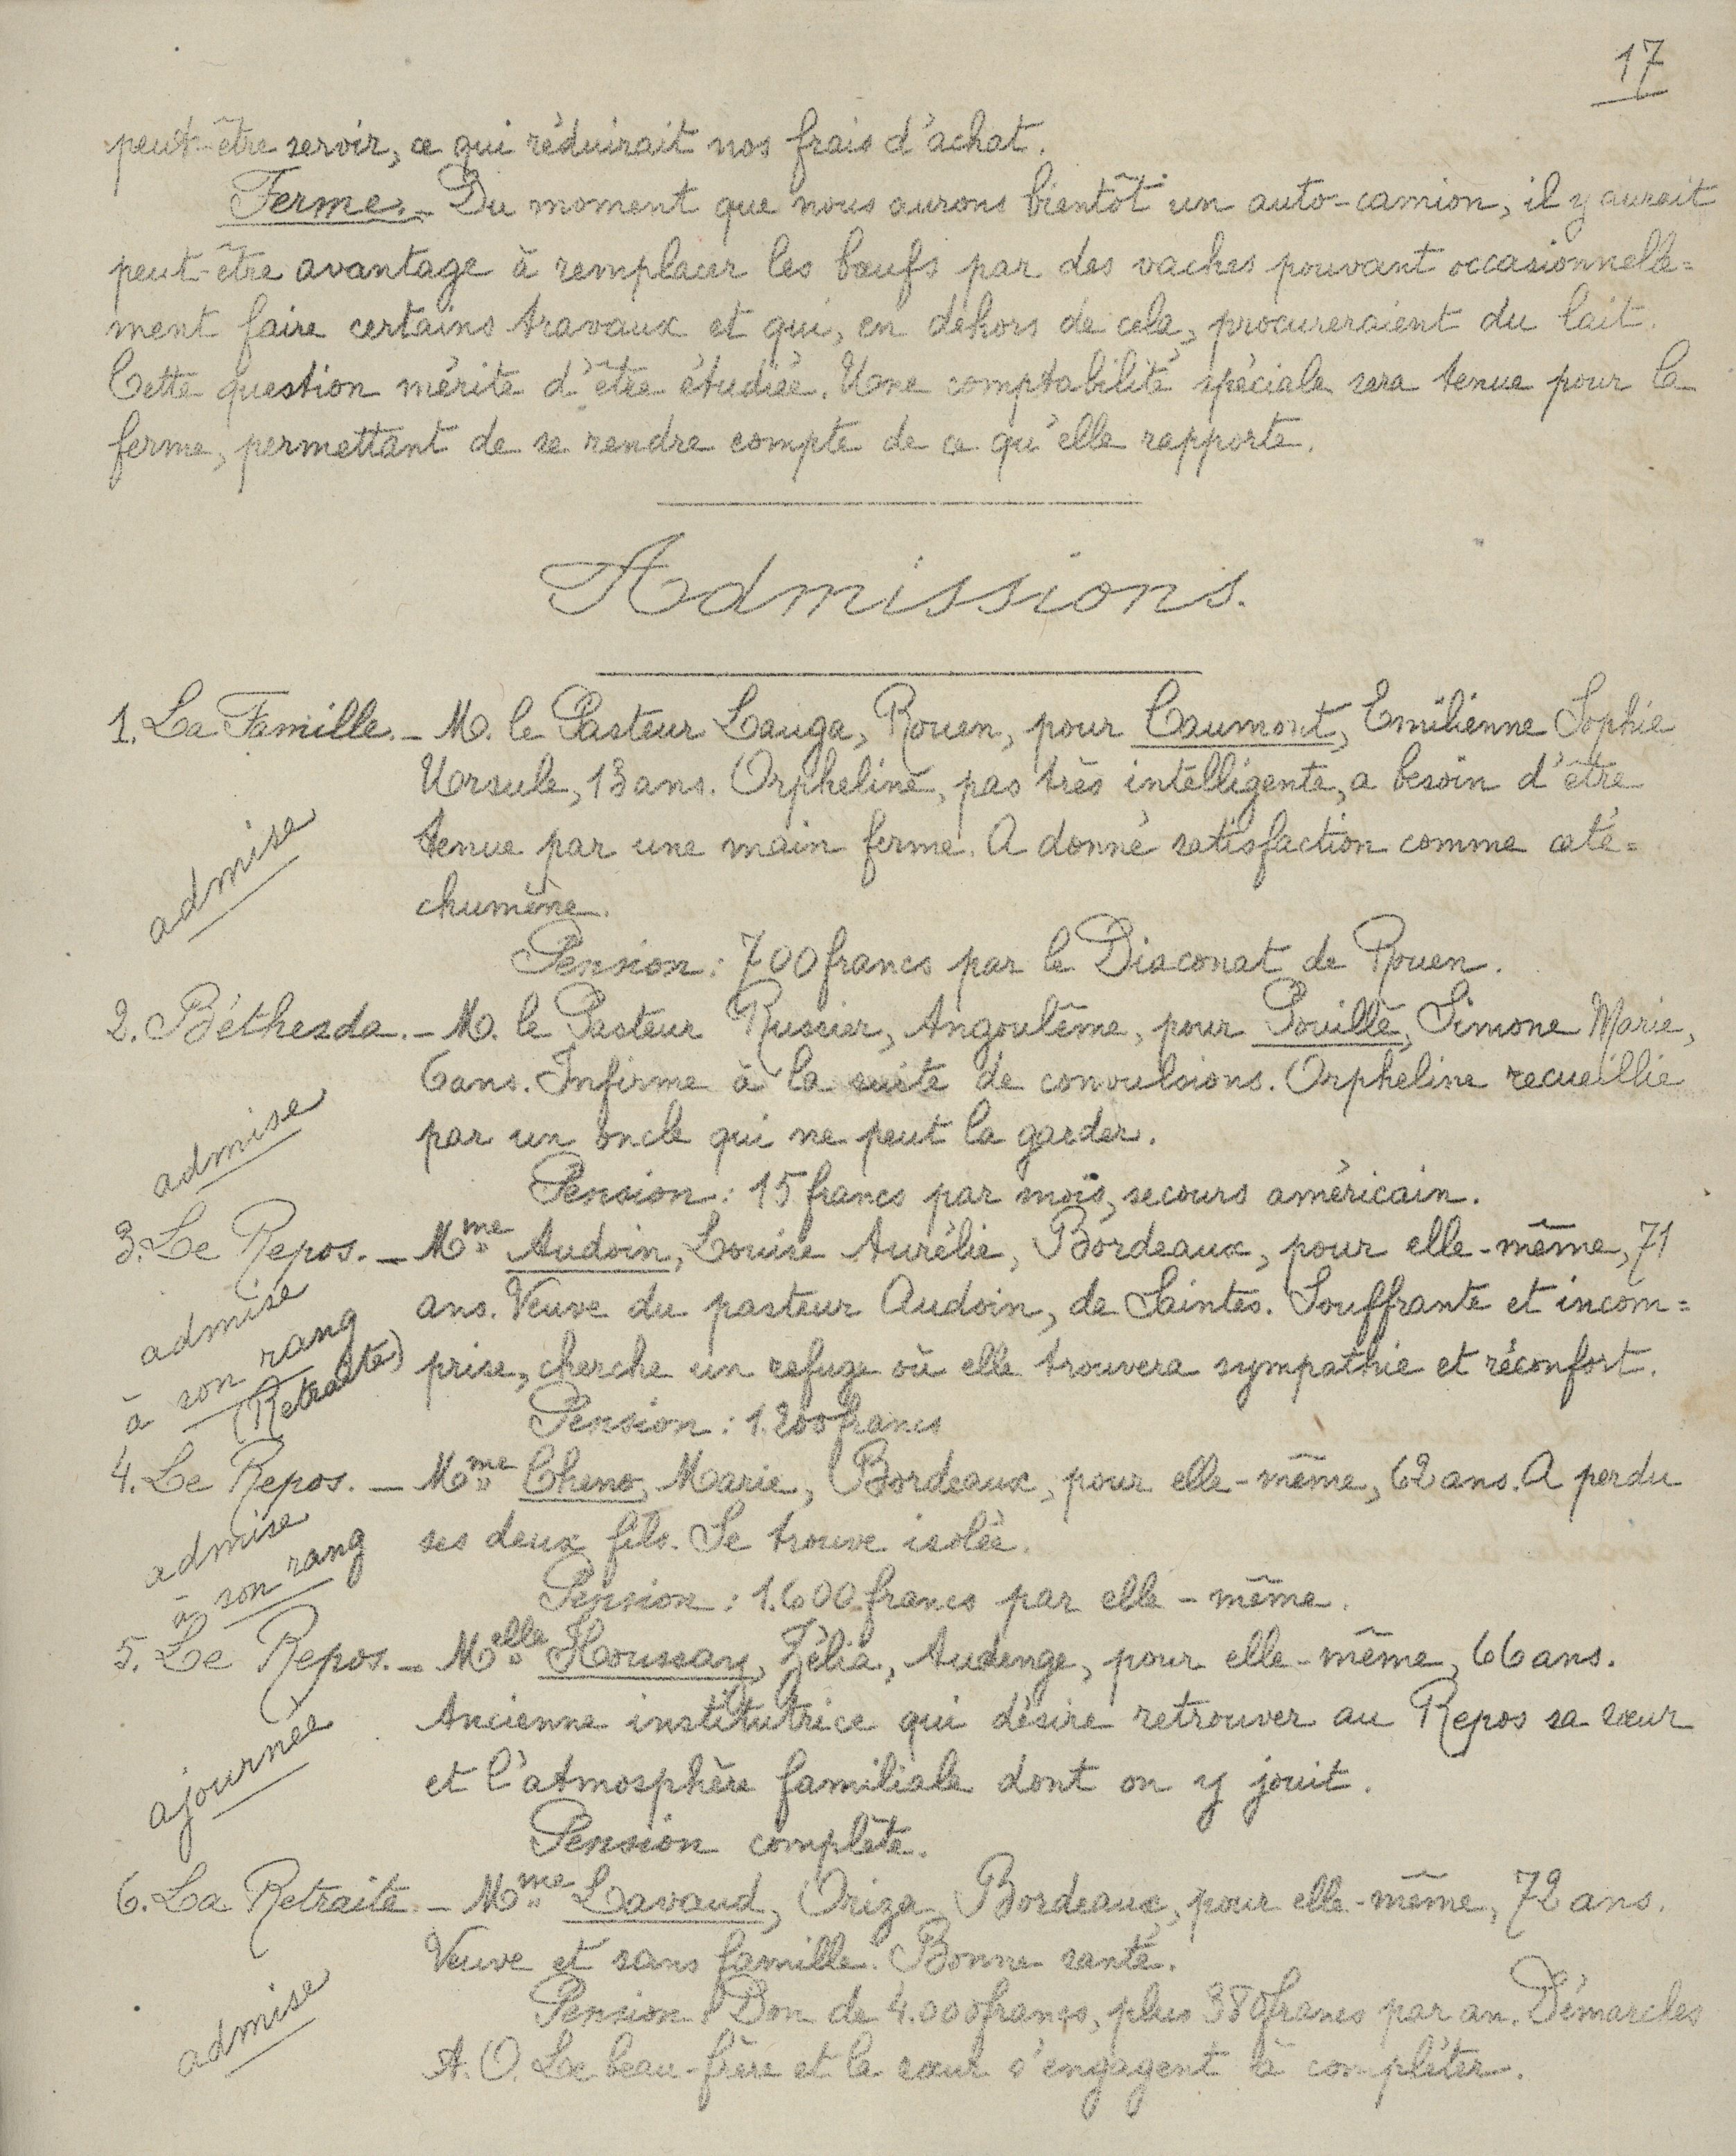 17
peut-être servir, ce qui réduirait nos frais d'achat.
Ferme. - Du moment que nous aurons bientôt un auto-camion, il y aurait
peut-être avantage à remplacer les bœufs par des vaches pouvant occasionnelle=
ment faire certains travaux et qui, en dehors de cela, procureraient du lait.
Cette question mérite d'être étudiée. Une comptabilité spéciale sera tenue pour la
ferme, permettant de se rendre compte de ce qu'elle rapporte.
Admissions.
1. La Famille. - M. le Pasteur Lauga, Rouen, pour Caumont, Emilienne Sophie
Ursule, 13 ans. Orpheline, pas très intelligente, a besoin d'être
tenue par une main ferme. A donné satisfaction comme caté=
admise
chumène.
Pension : 700 francs par le Diaconat de Rouen.
2. Béthesda. - M. le Pasteur Russier, Angoulême, pour Pouillé, Simone Marie,
6 ans. Infirme à la suite de convulsions. Orpheline recueillie
par un oncle qui ne peut la garder.
admise
Pension : 15 francs par mois, secours américain.
3. Le Repos. - Mme Audoin, Louise Aurélie, Bordeaux, pour elle-même, 71
ans. Veuve du pasteur Audoin, de Saintes. Souffrante et incom=
prise, cherche un refuge où elle trouvera sympathie et réconfort.
admise
à son rang
(Retraite)
Pension : 1.200 francs
4. Le Repos. - Mme Cheno, Marie, Bordeaux, pour elle-même, 62 ans. A perdu
ses deux fils. Se trouve isolée.
admise
à son rang
Pension : 1.600 francs par elle-même.
5. Le Repos. - Melle Houssay, Zélia, Audenge, pour elle-même, 66 ans.
Ancienne institutrice qui désire retrouver au Repos sa sœur
et l'atmosphère familiale dont on y jouit.
ajournée
Pension complète.
6. La Retraite - Mme Lavaud, Oriza, Bordeaux, pour elle-même, 72 ans.
Veuve et sans famille. Bonne santé.
Pension : Don de 4.000 francs, plus 380 francs par an. Démarches
admise
A. O. Le beau-frère et la sœur s'engagent à compléter.